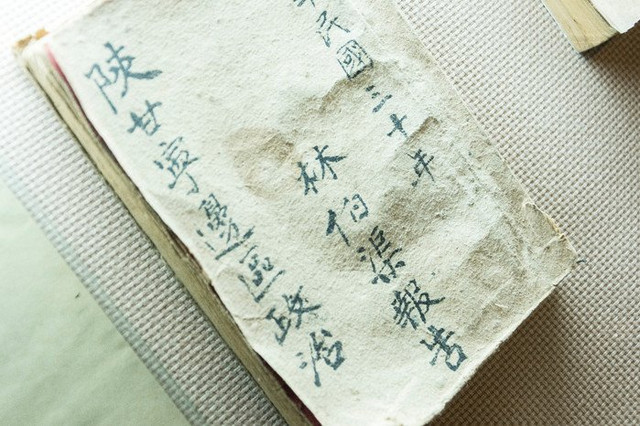 民國三十年
林伯渠報告
陝甘寧邊區政治